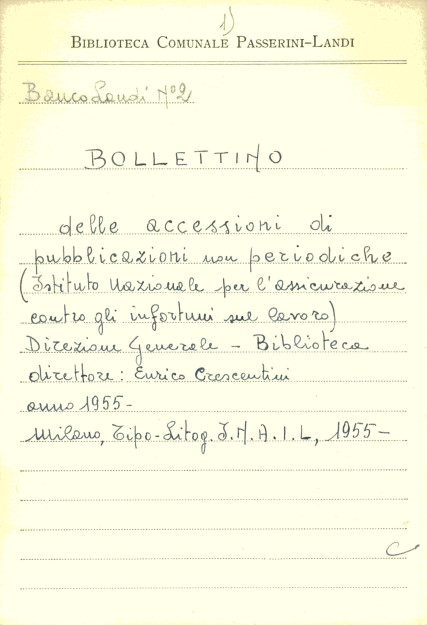 1)
BIBLIOTECA COMUNALE PASSERINI-LANDI
Banco Landi Nº2
BOLLETTINO
delle accessioni di
pubblicazioni non periodiche
(Istituto Nazionale per l'assicurazione
contro gli infortuni sul lavoro)
Direzione Generale - Biblioteca
direttore: Enrico Crescentini
anno 1955-
Milano, Tipo-Litog. I.N.A.I.L, 1955-
C